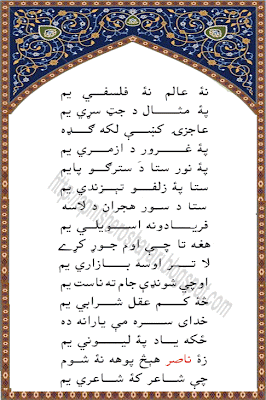 نهٔ عالم نهٔ فلسفي يم
پهٔ مثال د جټ سړي يم
عاجزۍ کښې لکه ګډه
پهٔ غرور د ازمري يم
پهٔ نور ستا دَ سترګو پايم
ستا پهٔ زلفو تيزندې يم
ستا د سور هجران د لاسه
فريادونه اسويلي يم
هغه تا چې اوم جوړ کړے
لا تر اوسه بازاري يم
اوچې شونډې جام ته ناست يم
څهٔ کم عقل شرابي يم
خداى سره مې يارانه ده
ځکه ياد پهٔ ليونې يم
زهٔ ناصر هېڅ پوهه نهٔ شوم
چې شاعر کهٔ شاعري يم